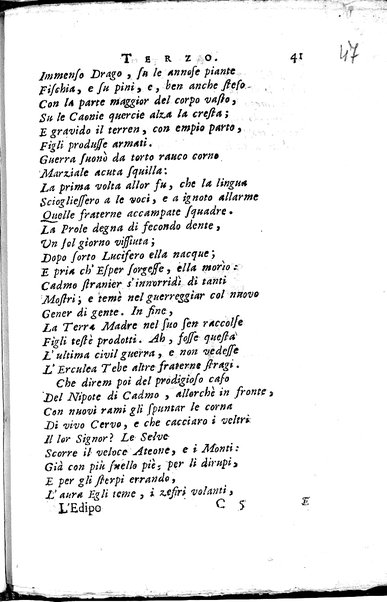 TERZO. 41
47
Immenſo Drago, ſu le annoſe piante
Fiſchia, e ſu pini, e, ben anche ſteſo
Con la parte maggior del corpo vaſto,
Su le Caonie quercie alza la creſta;
E gravido il terren, con empio parto,
Figli produſſe armati.
Guerra ſuonò da torto rauco corno
Marziale acuta ſquilla:
La prima volta allor fu, che la lingua
Scioglieſſero a le voci, e a ignoto allarme
Quelle fraterne accampate ſquadre.
La Prole degna di fecondo dente,
Un ſol giorno viſſuta;
Dopo ſorto Lucifero ella nacque;
E pria ch' Eſper ſorgeſſe, ella morìo:
Cadmo ſtranier s'innorridì di tanti
Moſtri; e temè nel guerreggiar col nnovo
Gener di gente. In fine,
La Terra Madre nel ſuo ſen raccolſe
Figli teſtè prodotti. Ah, foſſe queſta
L'ultima civil guerra, e non vedeſſe
L'Erculea Tebe altre fraterne ſtragi.
Che direm poi del prodigioſo caſo
Del Nipote di Cadmo, allorchè in fronte,
Con nuovi rami gli ſpuntar le corna
Di vivo Cervo, e che cacciaro i veltri
Il lor Signor? Le Selve
Scorre il veloce Ateone, e i Monti:
Già con più ſnello piè, per li dirupi,
E per gli ſterpi errando,
L'aura Egli teme, i zefiri volanti,
L'Edipo C 5 E